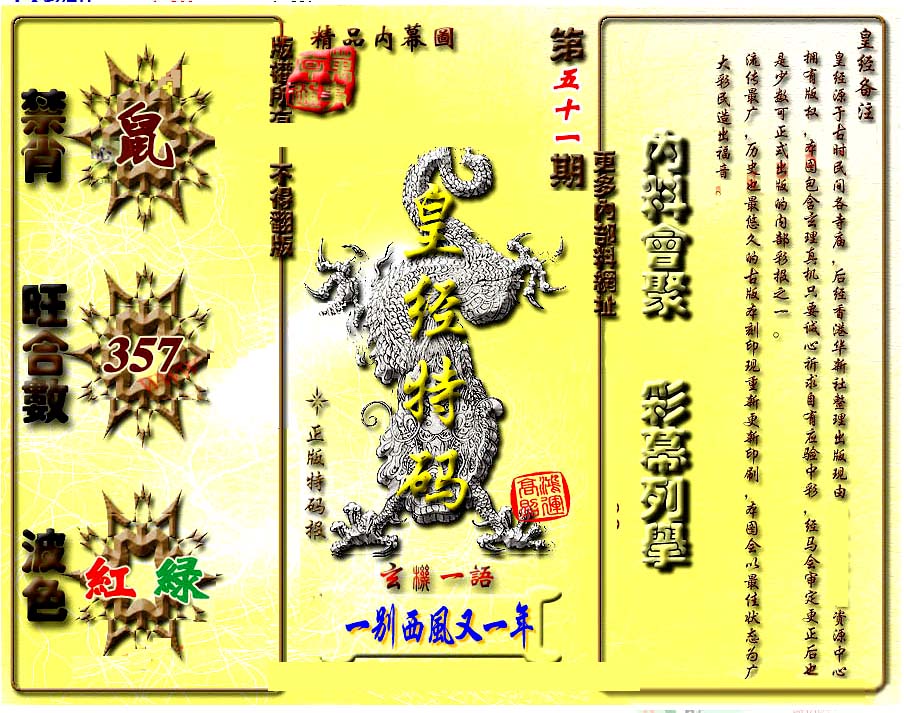 皇经备注
皇经源于古时民间各寺庙，后经香港华新社整理出版现由
资源中心
拥有版权，本图包含玄理真机只要诚心祈求自有应验中彩，经马会审定更正后也
是少数可正式出版的内部彩报之一。
流传最广，历史也最悠久的古版本刻印现重新更新印刷，本图会以最佳状态为广
大彩民造出福音
内料會聚
彩幕列舉
更多内部料網址
第五十一期
精品内幕圖
版權所有
不得翻版
皇经特码
正版特码报
鴻運
高照
玄機一語
一别西風又一年
禁肖
鼠
旺合數
357
波色
紅 綠